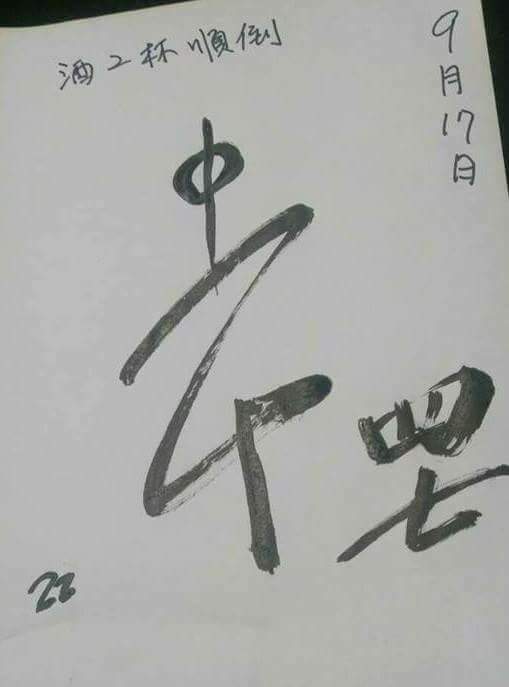 9月17日
酒2杯順倒
中
四七
22